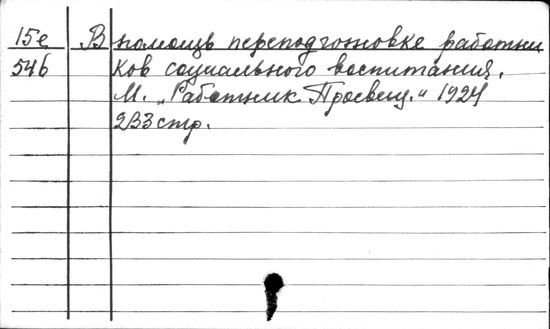 15е В помощь переподготовке работни
546 ков социального воспитания.
М. „Работник Просвещ." 1924
233 стр.